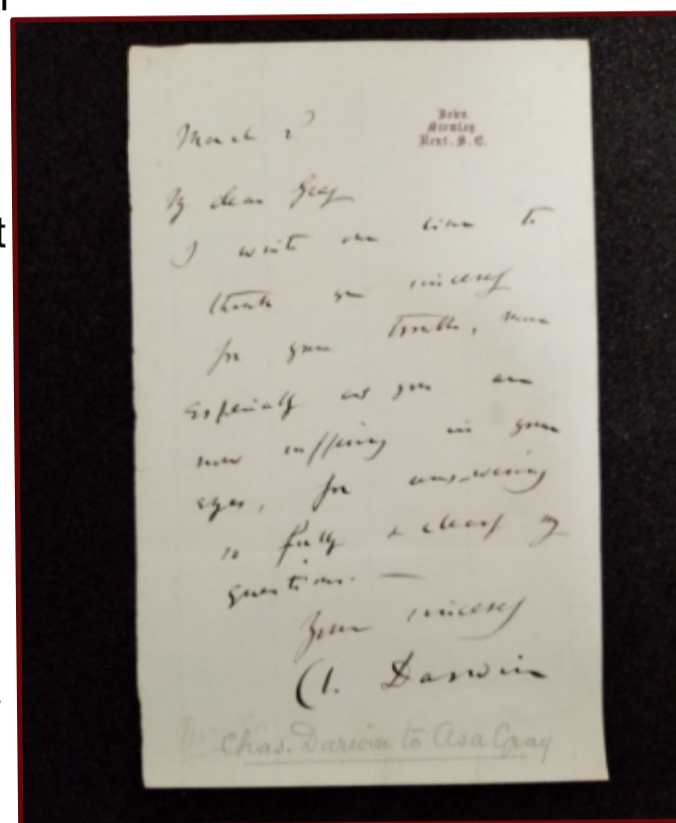 Down.
Bromley
Kent. S.E.
March 2
My dear Gray
I write one line to
thank you sincerely
for your trouble, more
especially as you are
now suffering in your
eyes, for answering
so fully & clearly my
questions. —
Yours sincerely
Ch. Darwin
Chas. Darwin to Asa Gray